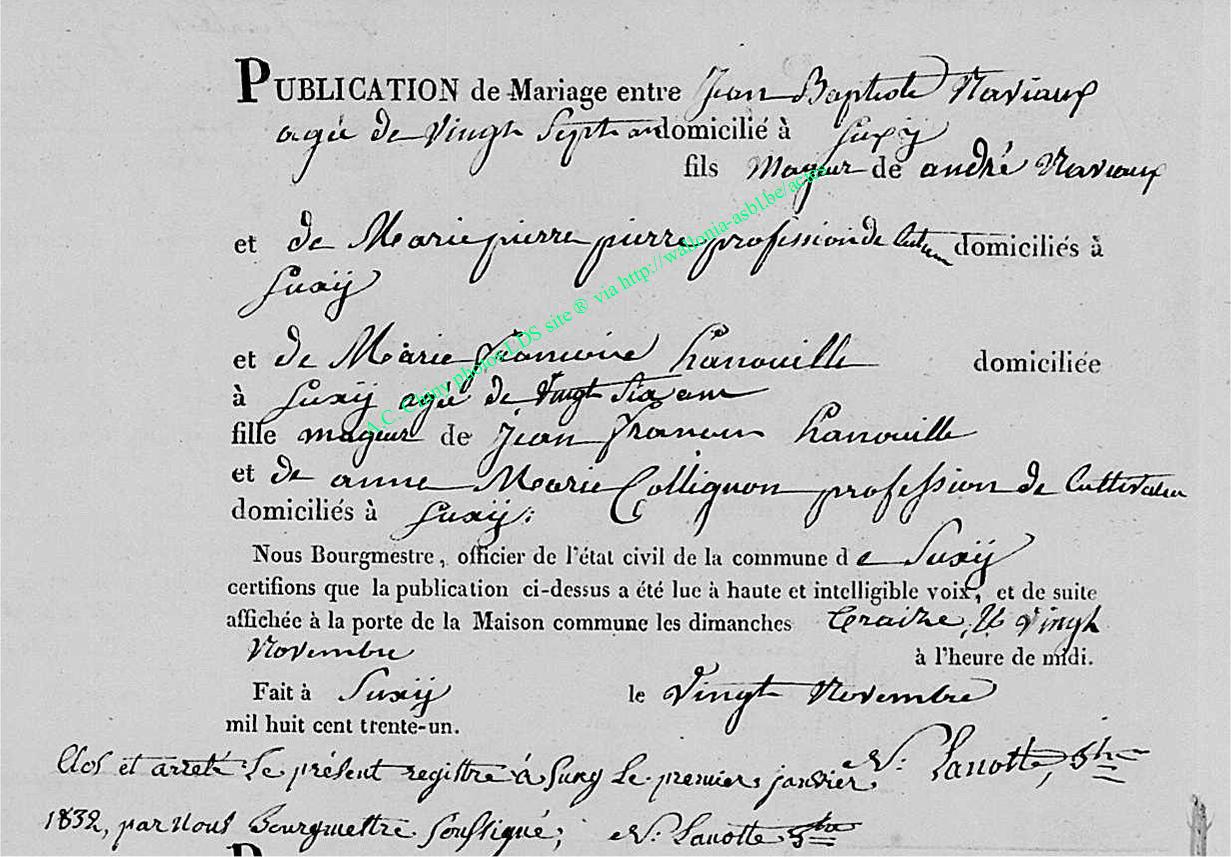 PUBLICATION de Mariage entre Jean Baptiste Naviaux
agée de Vingt Sept an domicilié à Suxÿ
fils mageur de andré Naviaux
et de Marie pierre pierre profession de Cult domiciliés à
Suxÿ
et de Marie francoise hanouille domiciliée
à Suxÿ agée de Vingt Six ans
fille mageur de Jean francois hanouille
et de anne Marie Collignon profession de Cultivateur
domiciliés à Suxÿ:
Nous Bourgmestre, officier de l'état civil de la commune de Suxÿ
certifions que la publication ci-dessus a été lue à haute et intelligible voix, et de suite
affichée à la porte de la Maison commune les dimanches traize, & Vingt
Novembre
à l'heure de midi.
Fait à Suxÿ le Vingt Novembre
mil huit cent trente-un.
N: Lanotte, Btre
Clos et arreté Le présent registre à Suxy Le premier janvier
1832, par Nous Bourgmettre soussigné; N: Lanotte Btre
A.C. Chiny photos LDS site ® via http://wallonia-asbl.be/actes